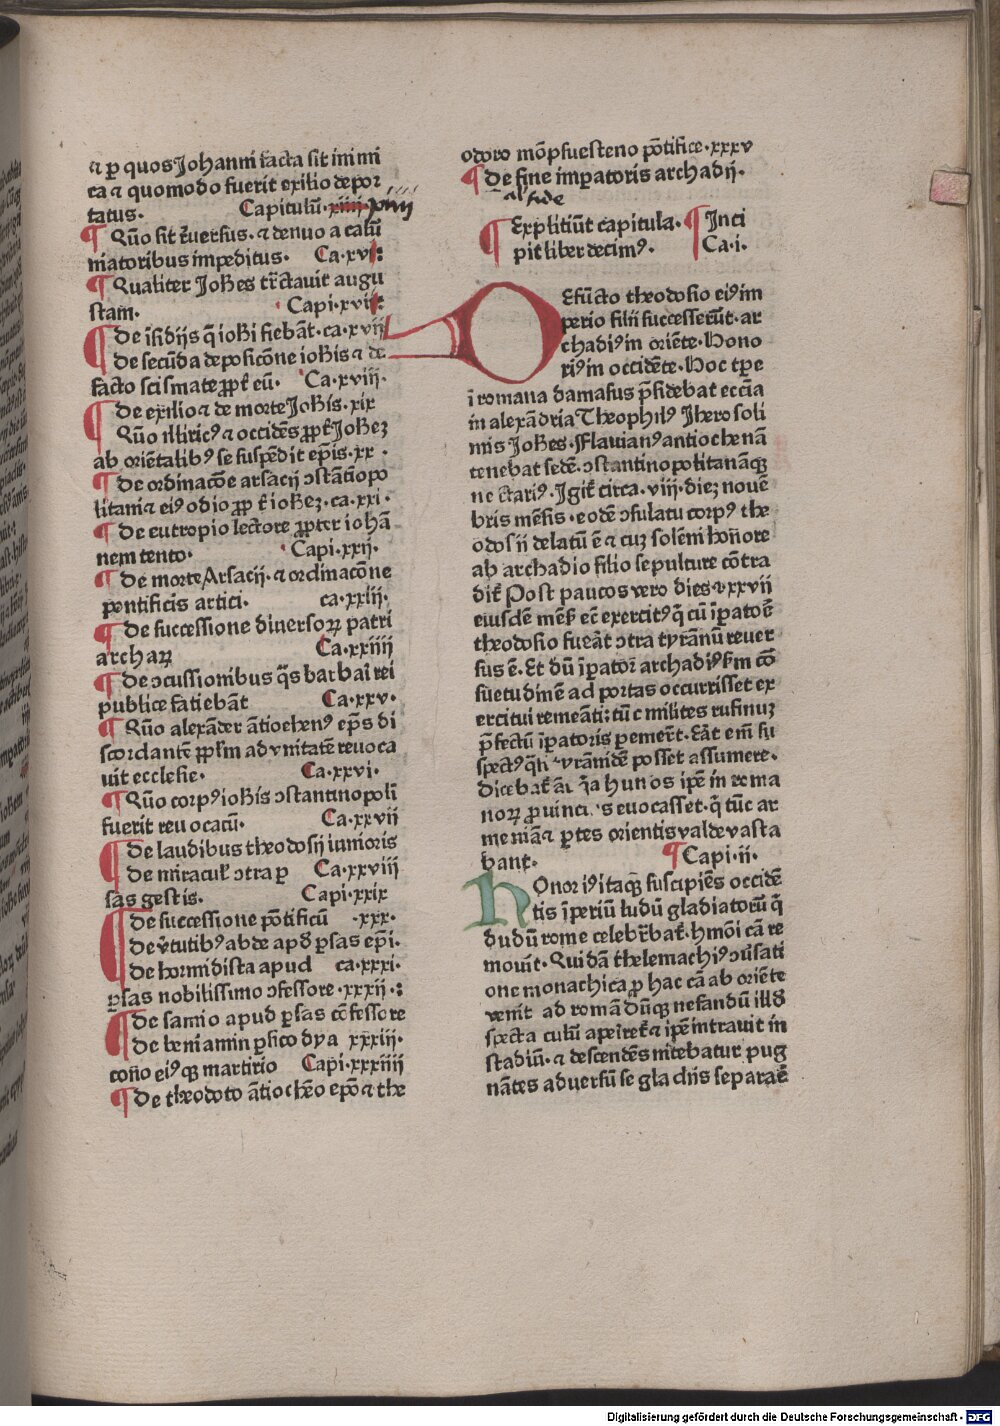 ⁊ ꝑ quos Johanni facta sit inimi
ca ⁊ quomodo fuerit exilio depor
tatus. Capitulū. xiiii xiiii
¶ Qūo sit ēuersus. ⁊ denuo a calū
niatoribus impeditus. Ca.xv
¶ Qualiter Joħes tr̄ctavit augu
stam. Capi.xvi
¶ De isidijs q̄ ioħi fiebāt. ca.xvii
De secūda deposicōne ioħis ⁊ de
facto scismate ꝓpt̄ eū. Ca.xviii.
¶ De exilio ⁊ de morte Joħis. xix
Qūo illiricꝰ ⁊ occidēs ꝓpt̄ Joħeꝫ
ab oriētalibꝰ se suspēdit ep̄is. xx.
¶ De ordinacōe arsacij ↄstātiopo
litani ⁊ eiꝰ odio ꝓp t̄ ioħeꝫ. ca.xxi.
¶ De eutropio lectore ꝓpter iohā
nem tento. Capi.xxij.
¶ De morte Arsacij. ⁊ ordinacōne
pontificis artici. ca.xxiij.
¶ De successione diuersoꝝ patri
archaꝝ Ca.xxiiii
¶ De ↄcussionibus q̄s barbari rei
publice fatiebāt Ca.xxv.
¶ Qūo alexāder ātiochenꝰ ep̄s di
scordantē ppl̄m ad vnitatē reuoca
uit ecclesie. Ca.xxvi.
¶ Qūo corpꝰ ioħis ↄstantinopoli
fuerit reuocacū. Ca.xxvii
¶ De laudibus theodosij iunioris
De miracul̄ ↄtra ꝑ Ca.xxviii
sas gestis. Capi.xxix
¶ De successione pōtificū .xxx.
De v̄tutibꝰ abde apđ ꝑsas ep̄i.
De hormidista apud ca.xxxi.
ꝑsas nobilissimo ↄfessore. xxxii.
¶ De samio apud ꝑsas cōfessore
De beniamin ꝑsico dya xxxiij.
coño eiꝰqꝫ martirio Capi.xxxiiij
¶ De theodoto ātiochēo epō ⁊ the
odoro mōpsuesteno pōtifice. xxxv
¶ De fine imperatoris archadij.
al' fide
¶ Explitiūt capitula. ¶ Inci
pit liber decimꝰ. Ca.i.
DEfūcto theodosio eiꝰ im
perio filii successerūt. ar
chadiꝰ in oriēte. Hono
riꝰ in occidēte. Hoc tꝑe
ī romana damasus p̄sidebat eccīa
in alexādria Theophilꝰ Jherosoli
mis Joħes. Flauianꝰ antiochenā
tenebat sedē. ↄstantinopolitanāqꝫ
nectariꝰ. Igit̄ circa. viii. dieꝫ nouē
bris mēsis. eodē ↄsulatu corpꝰ the
odosii delatū ē ⁊ cuꝫ solēni honore
ab archadio filio sepulture cōtra
dit̄ Post paucos vero dies ⁊ xxvii
eiusdē mēs̄ ec̄ exercitꝰ q̄ cū īpatoē
theodosio fueāt ↄtra tyrānū reuer
sus ē. Et dū īpator archadiꝰ s̄m cō
suetudinē ad portas occurrisset ex
ercitui remeāti: tūc milites rufinuꝫ
p̄fectū īpatoris ꝑemert̄. Eāt em̄ su
spectꝰ q̄si tyrānidē posset assumere.
Dicebat̄ āt q̄a hunos ipē in roma
noꝝ ꝓuincijs euocasset. q̄ tūc ar
meniā ⁊ ꝑtes orientis valde vasta
bant. ¶ Capi.ii.
HOnoriꝰ itaqꝫ suscipiēs occidē
tis īperiū ludū gladiatorū q̄
dudū rome celebr̄bat̄. hmōi cā re
mouit. Quidā thelemachiꝰ ↄūsati
one monachica ꝓ hac cā ab oriēte
venit ad romā dūqꝫ nefandū illđ
spectaculū apeiret̄ ⁊ ipē intrauit in
stadiū. ⁊ descendēs nitebatur pug
nātes aduersū se gladiis separaē
Digitalisierung gefördert durch die Deutsche Forschungsgemeinschaft - DFG